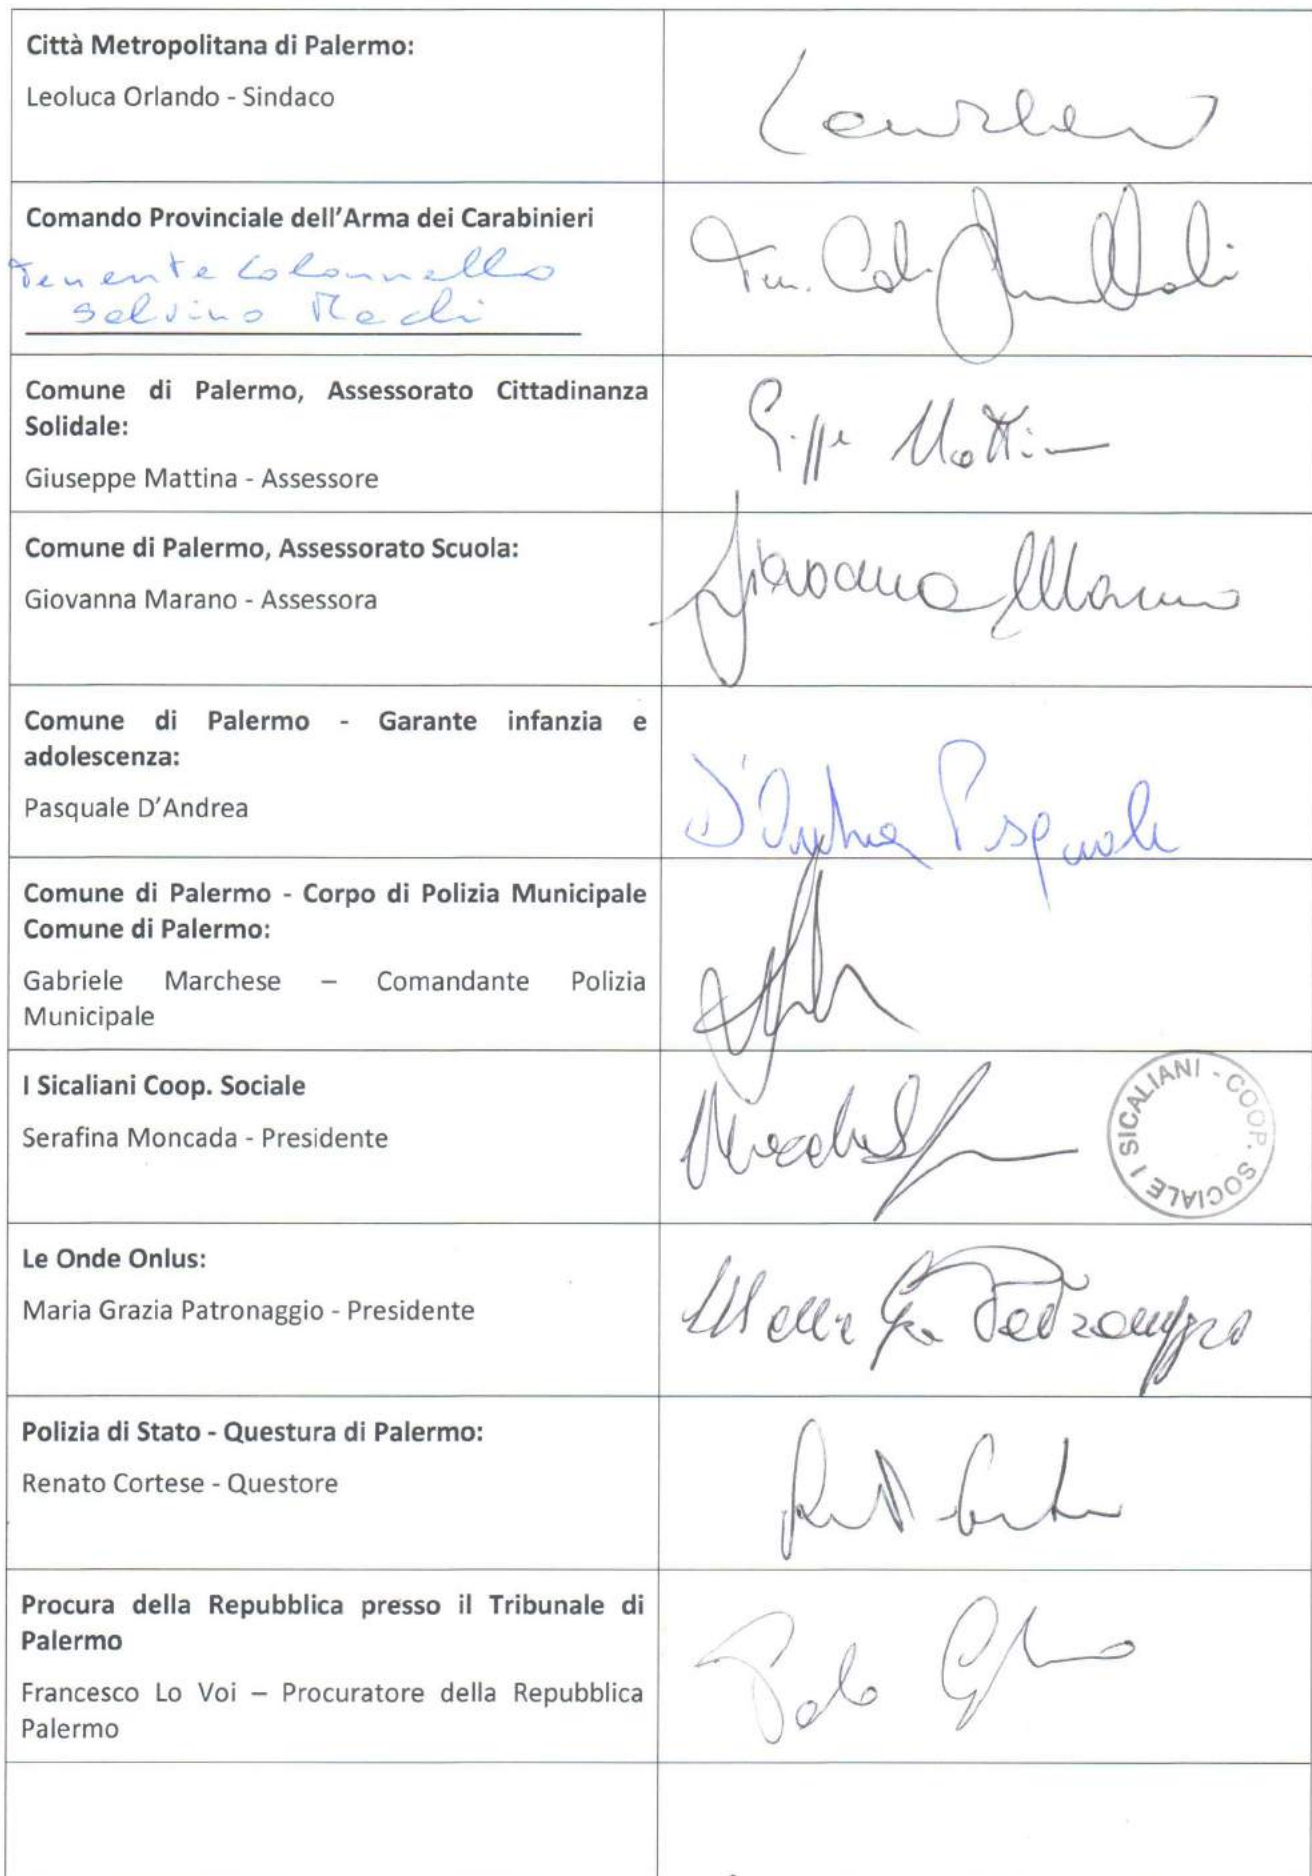 Città Metropolitana di Palermo:
Leoluca Orlando - Sindaco
Comando Provinciale dell'Arma dei Carabinieri
Tenente Colonnello
Ten. Col.
Comune di Palermo, Assessorato Cittadinanza
Solidale:
Giuseppe Mattina - Assessore
Comune di Palermo, Assessorato Scuola:
Giovanna Marano - Assessora
Giovanna Marano
Comune di Palermo - Garante infanzia e
adolescenza:
Pasquale D'Andrea
D'Andrea Pasquale
Comune di Palermo - Corpo di Polizia Municipale
Comune di Palermo:
Gabriele Marchese – Comandante Polizia
Municipale
I Sicaliani Coop. Sociale
Serafina Moncada - Presidente
I SICALIANI - COOP. SOCIALE
Le Onde Onlus:
Maria Grazia Patronaggio - Presidente
Polizia di Stato - Questura di Palermo:
Renato Cortese - Questore
Procura della Repubblica presso il Tribunale di
Palermo
Francesco Lo Voi – Procuratore della Repubblica
Palermo